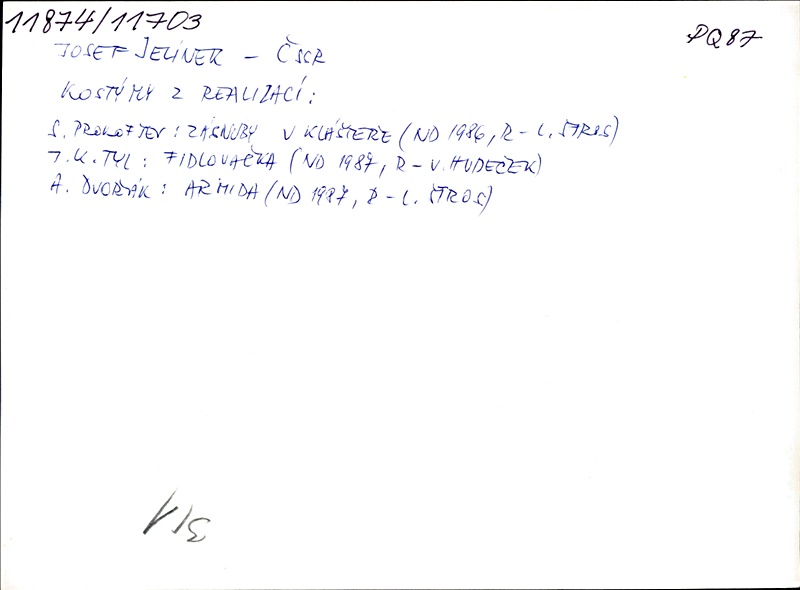 11874/11703
PQ87
JOSEF JELÍNEK – ČSR
KOSTÝMY Z REALIZACÍ:
S. PROKOFJEV: ZÁSNUBY V KLÁŠTEŘE (ND 1986, R – L. ŠTROS)
J. K. TYL: FIDLOVAČKA (ND 1987, R – V. HUDEČEK)
A. DVOŘÁK: ARMIDA (ND 1987, R – L. ŠTROS)